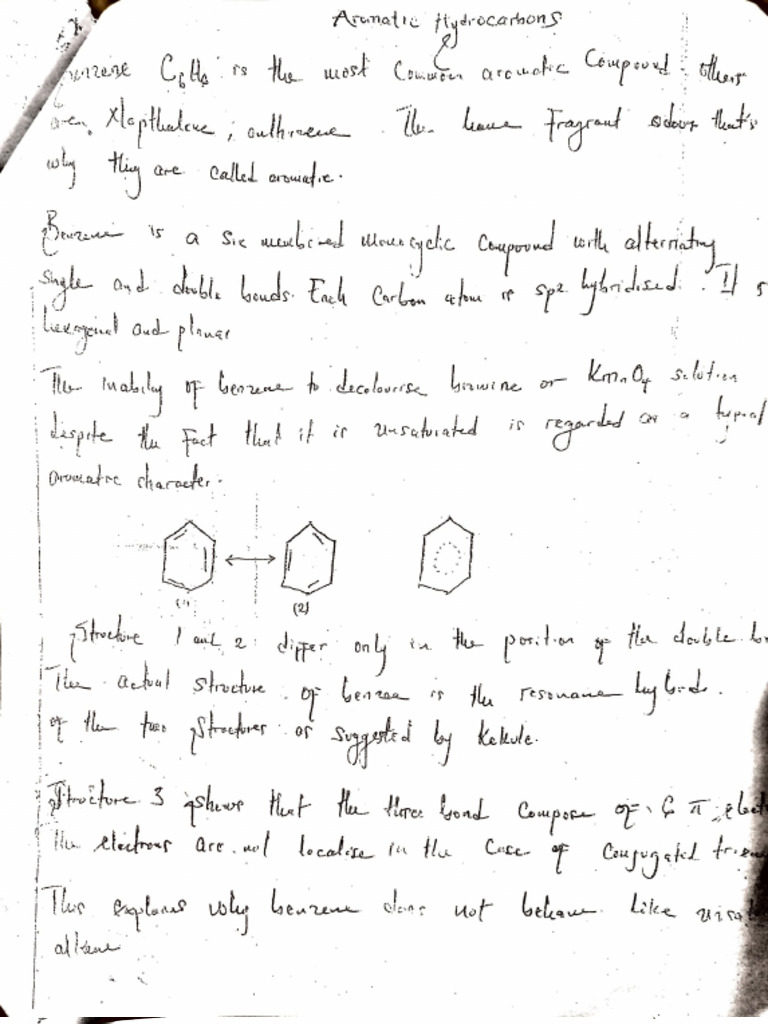 Aromatic Hydrocarbons
Benzene C6H6 is the most Common aromatic Compound others
are, Napthalene, anthracene. The have Fragrant odour that's
why they are called aromatic.
Benzene is a Six membered monocyclic Compound with alternating
single and double bonds. Each Carbon atom is sp2 hybridised. It s
hexagonal and planar
The inability of benzene to decolourise bromine or KmnO4 solution
despite the Fact that it is unsaturated is regarded as a typical
aromatic character.
(1) (2)
Structure 1 and 2 differ only in the position of the double bo
The actual structure of benzene is the resonance hybrid.
of the two Structures as suggested by Kekule.
Structure 3 shows that the three bond Compose of 6 π elect
The electrons are not localise in the Case of Conjugated
This explains why benzene does not behave like
alkene